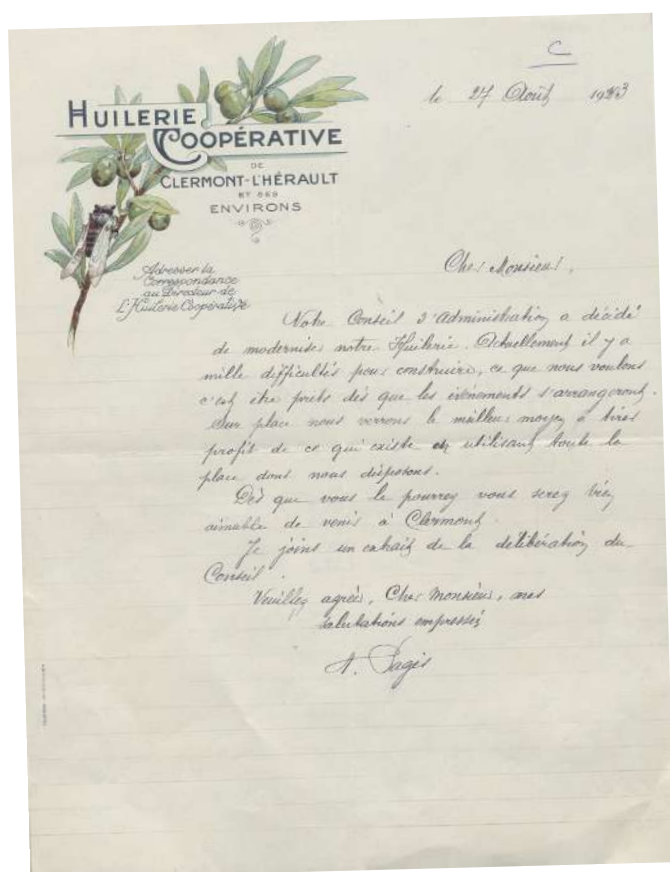 C
le 27 Août 1943
HUILERIE
COOPÉRATIVE
DE
CLERMONT-L'HÉRAULT
ET SES
ENVIRONS
Adresser la
Correspondance
au Directeur de
L'Huilerie Coopérative
Cher Monsieur,
Notre Conseil d'Administration a décidé
de moderniser notre Huilerie. Actuellement il y a
mille difficultés pour construire, ce que nous voulons
c'est être prêts dès que les évènements s'arrangeront.
Sur place nous verrons le meilleur moyen à tirer
profit de ce qui existe en utilisant toute la
place dont nous disposons.
Dès que vous le pourrez vous serez bien
aimable de venir à Clermont.
Je joins un extrait de la délibération du
Conseil.
Veuillez agréer, Cher Monsieur, mes
salutations empressées
A. Pagès